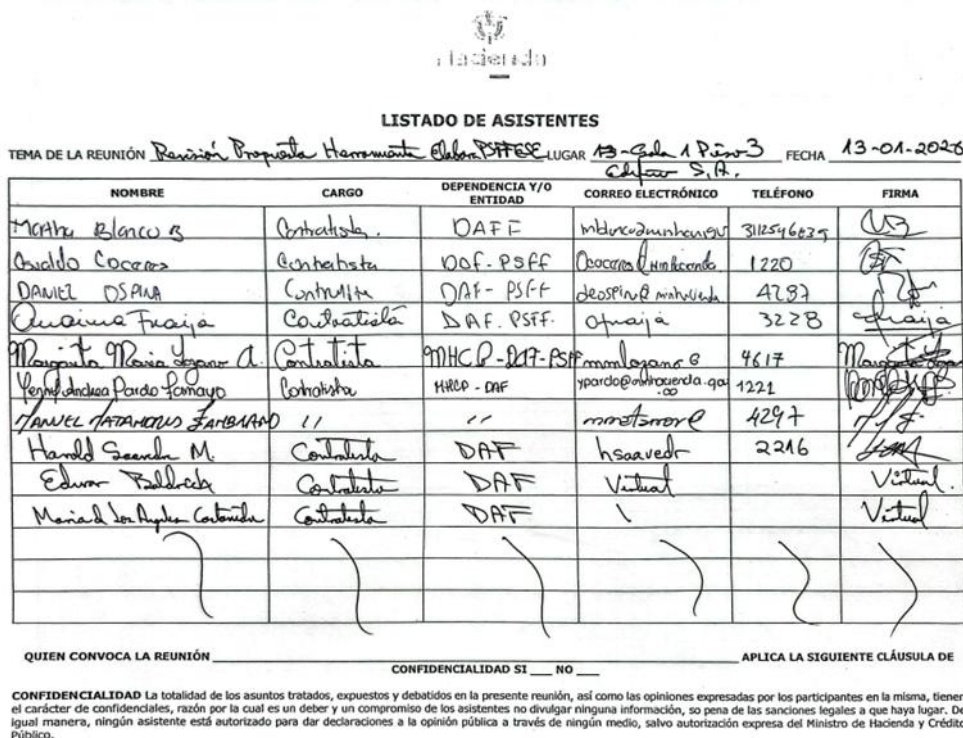 Hacienda
LISTADO DE ASISTENTES
TEMA DE LA REUNIÓN Revisión Propuesta Herramienta Elabora PSFFESE LUGAR 13-Sala 1 Piso 3 FECHA 13-01-2026
Edificio S.A.
NOMBRE CARGO DEPENDENCIA Y/O ENTIDAD CORREO ELECTRÓNICO TELÉFONO FIRMA
Martha Blanco B Contratista. DAFF 3112546839
Osvaldo Cocares Contratista DAF-PSFF 1220
DANIEL OSPINA Contratista DAF-PSFF 4297
Fraija Contratista DAF. PSFF. ofraija 3228
Margarita Maria Lozano A. Contratista MHCP-DAF-PSFF mmlozano@ 4617
Yenny Andrea Pardo Tamayo Contratista MHCP-DAF ypardo@minhacienda.gov.co 1221
MANUEL MATAMOROS ZAMBRANO // // 4297
Harold Saavedra M. Contratista DAF hsaavedr 2216
Contratista DAF Virtual Virtual.
Maria d los Angeles Castañeda Contratista DAF \ Virtual
QUIEN CONVOCA LA REUNIÓN APLICA LA SIGUIENTE CLÁUSULA DE
CONFIDENCIALIDAD SI ___ NO ___
CONFIDENCIALIDAD La totalidad de los asuntos tratados, expuestos y debatidos en la presente reunión, así como las opiniones expresadas por los participantes en la misma, tienen
el carácter de confidenciales, razón por la cual es un deber y un compromiso de los asistentes no divulgar ninguna información, so pena de las sanciones legales a que haya lugar. De
igual manera, ningún asistente está autorizado para dar declaraciones a la opinión pública a través de ningún medio, salvo autorización expresa del Ministro de Hacienda y Crédito
Público.